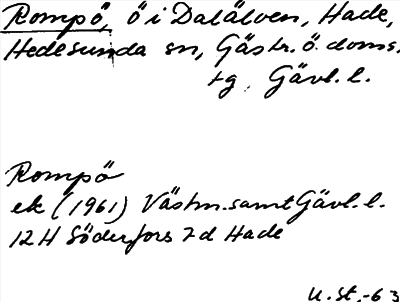 Rompö, ö i Dalälven, Hade,
Hedesunda sn, Gästr. ö. doms.
tg. Gävl. l.
Rompö
ek (1961) Västm. samt Gävl. l.
12H Söderfors 7d Hade
U. St. -63